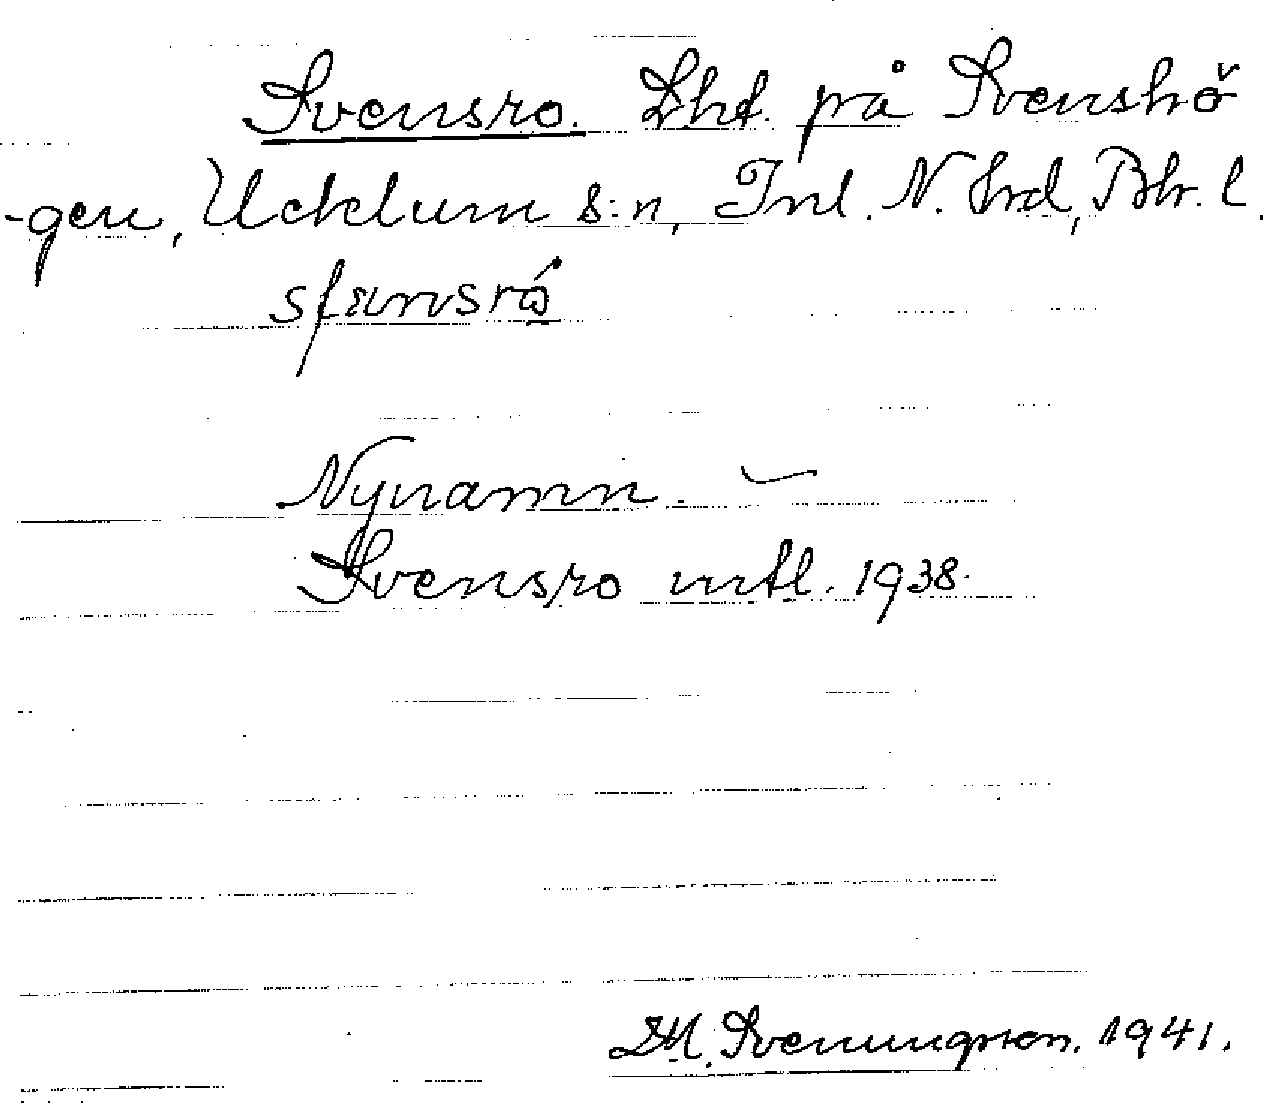 Svensro. Lht. på Svenshö
-gen, Ucklum s:n, Inl. N. hrd, Bhr. l.
Nynamn.
Svensro mtl. 1938.
Sveningson. 1941.